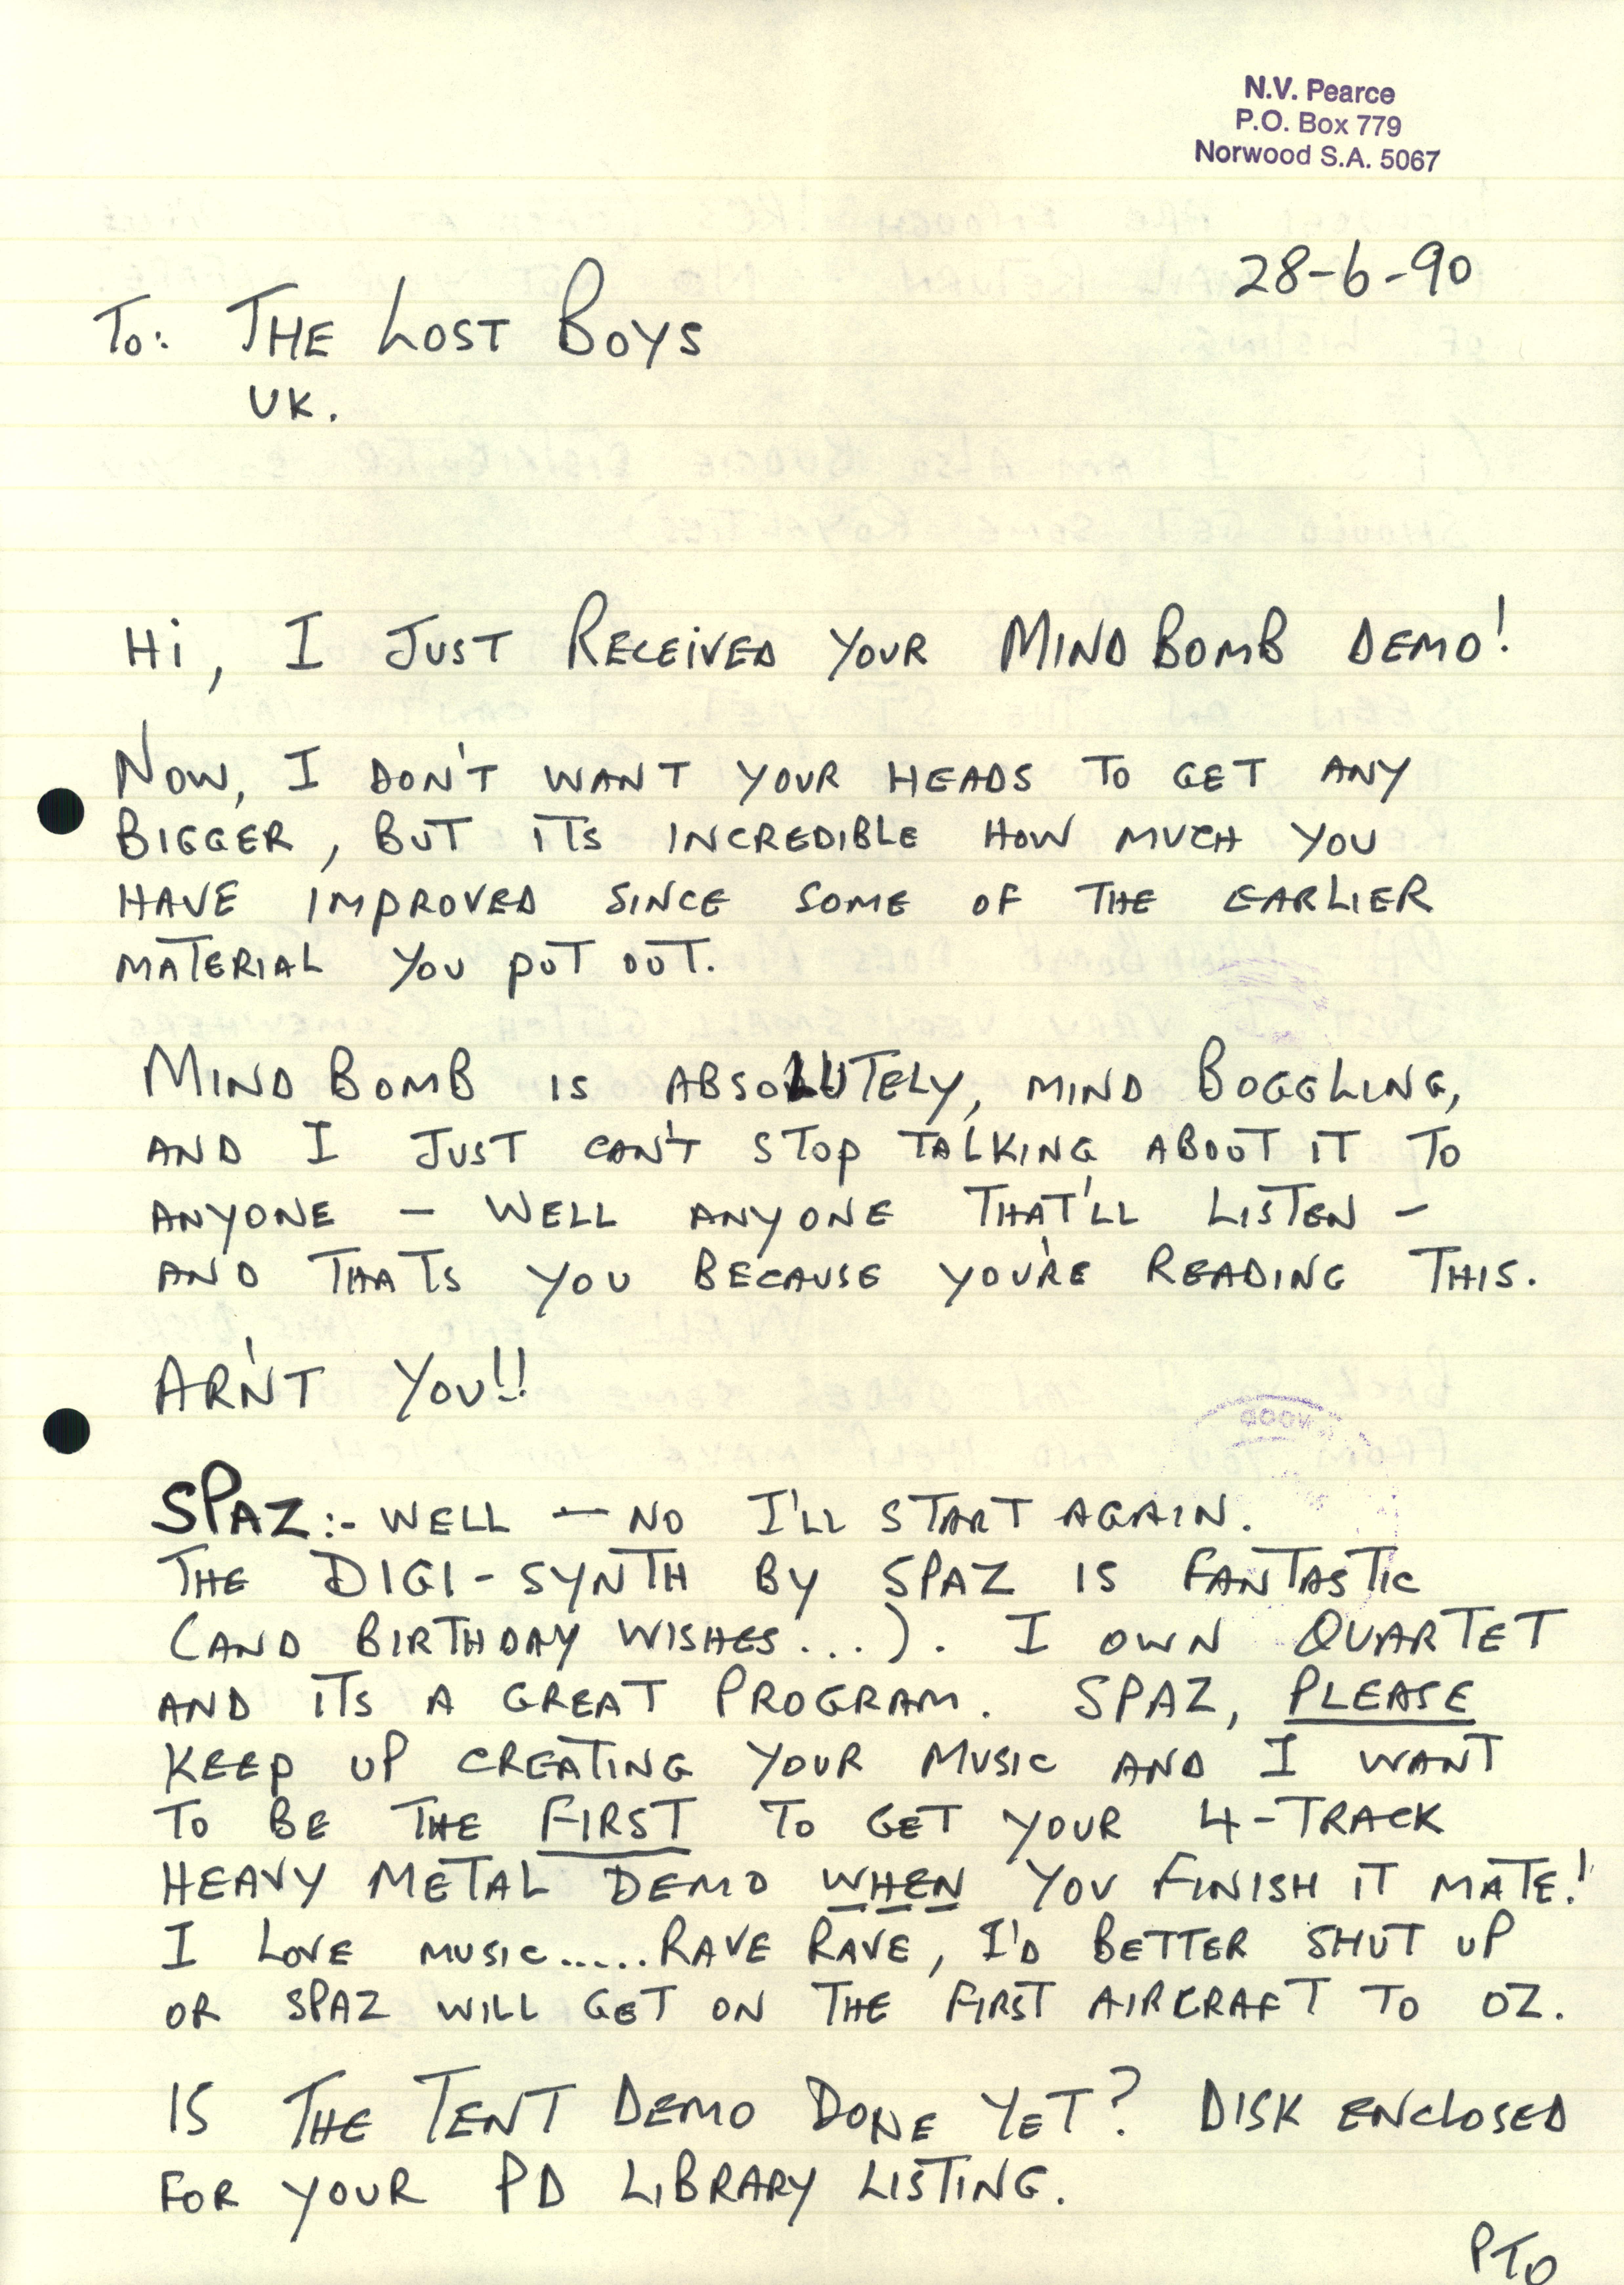 N.V. Pearce
P.O. Box 779
Norwood S.A. 5067
28-6-90
TO: THE LOST BOYS
UK.
Hi, I JUST RECEiVED YOUR MIND BOMB DEMO!
NOW, I DON'T WANT YOUR HEADS TO GET ANY
BIGGER, BUT ITS INCREDIBLE HOW MUCH YOU
HAVE IMPROVED SINCE SOME OF THE EARLIER
MATERIAL YOU PUT OUT.
MIND BOMB IS ABSOLUTELY, MIND BOGGLING,
AND I JUST CAN'T STOP TALKING ABOUT IT TO
ANYONE - WELL ANYONE THAT'LL LISTEN -
AND THATS YOU BECAUSE YOU'RE READING THIS.
ARN'T YOU!!
SPAZ:- WELL - NO I'LL START AGAIN.
THE DIGI-SYNTH BY SPAZ IS FANTASTIC
(AND BIRTHDAY WISHES...). I OWN QUARTET
AND ITS A GREAT PROGRAM. SPAZ, PLEASE
KEEP UP CREATING YOUR MUSIC AND I WANT
TO BE THE FIRST TO GET YOUR 4-TRACK
HEAVY METAL DEMO WHEN YOU FINISH IT MATE!
I LOVE MUSIC.....RAVE RAVE, I'D BETTER SHUT UP
OR SPAZ WILL GET ON THE FIRST AIRCRAFT TO OZ.
IS THE TENT DEMO DONE YET? DISK ENCLOSED
FOR YOUR PD LIBRARY LISTING.
PTO